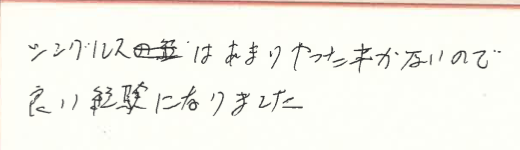 シングルスはあまりやった事がないので
良い経験になりました